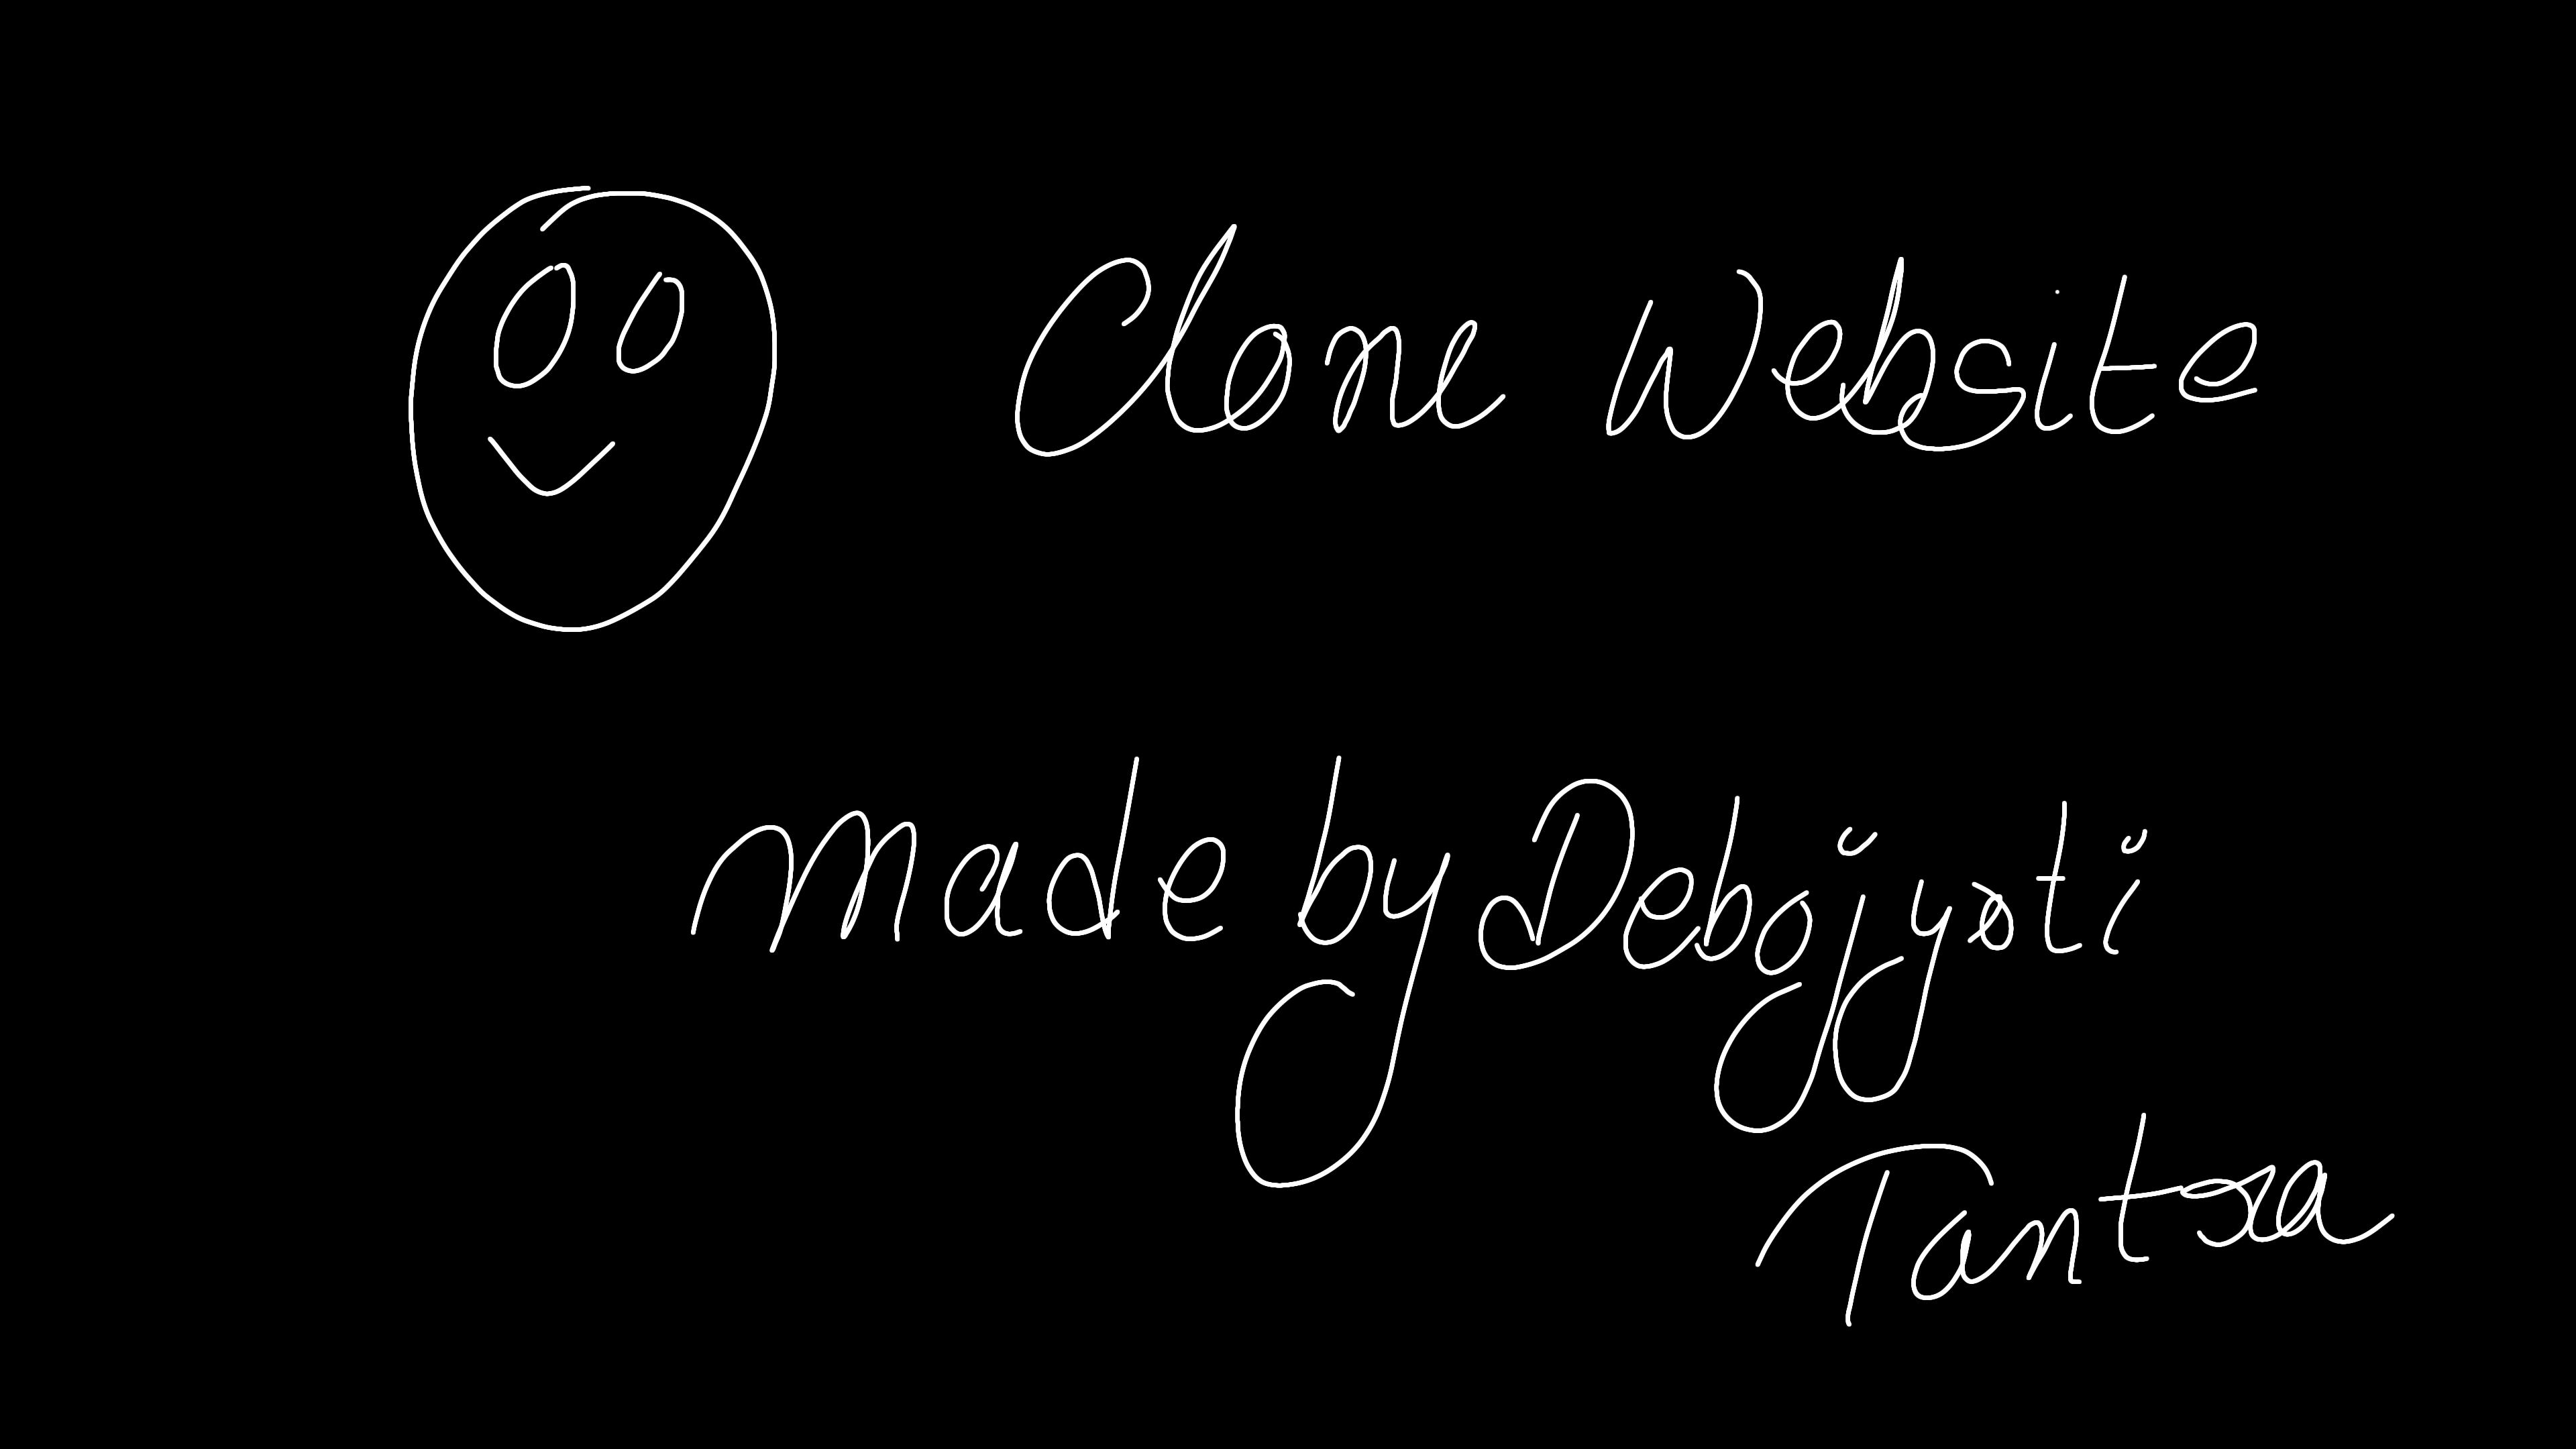 Clone Website
made by Debojyoti
Tantra